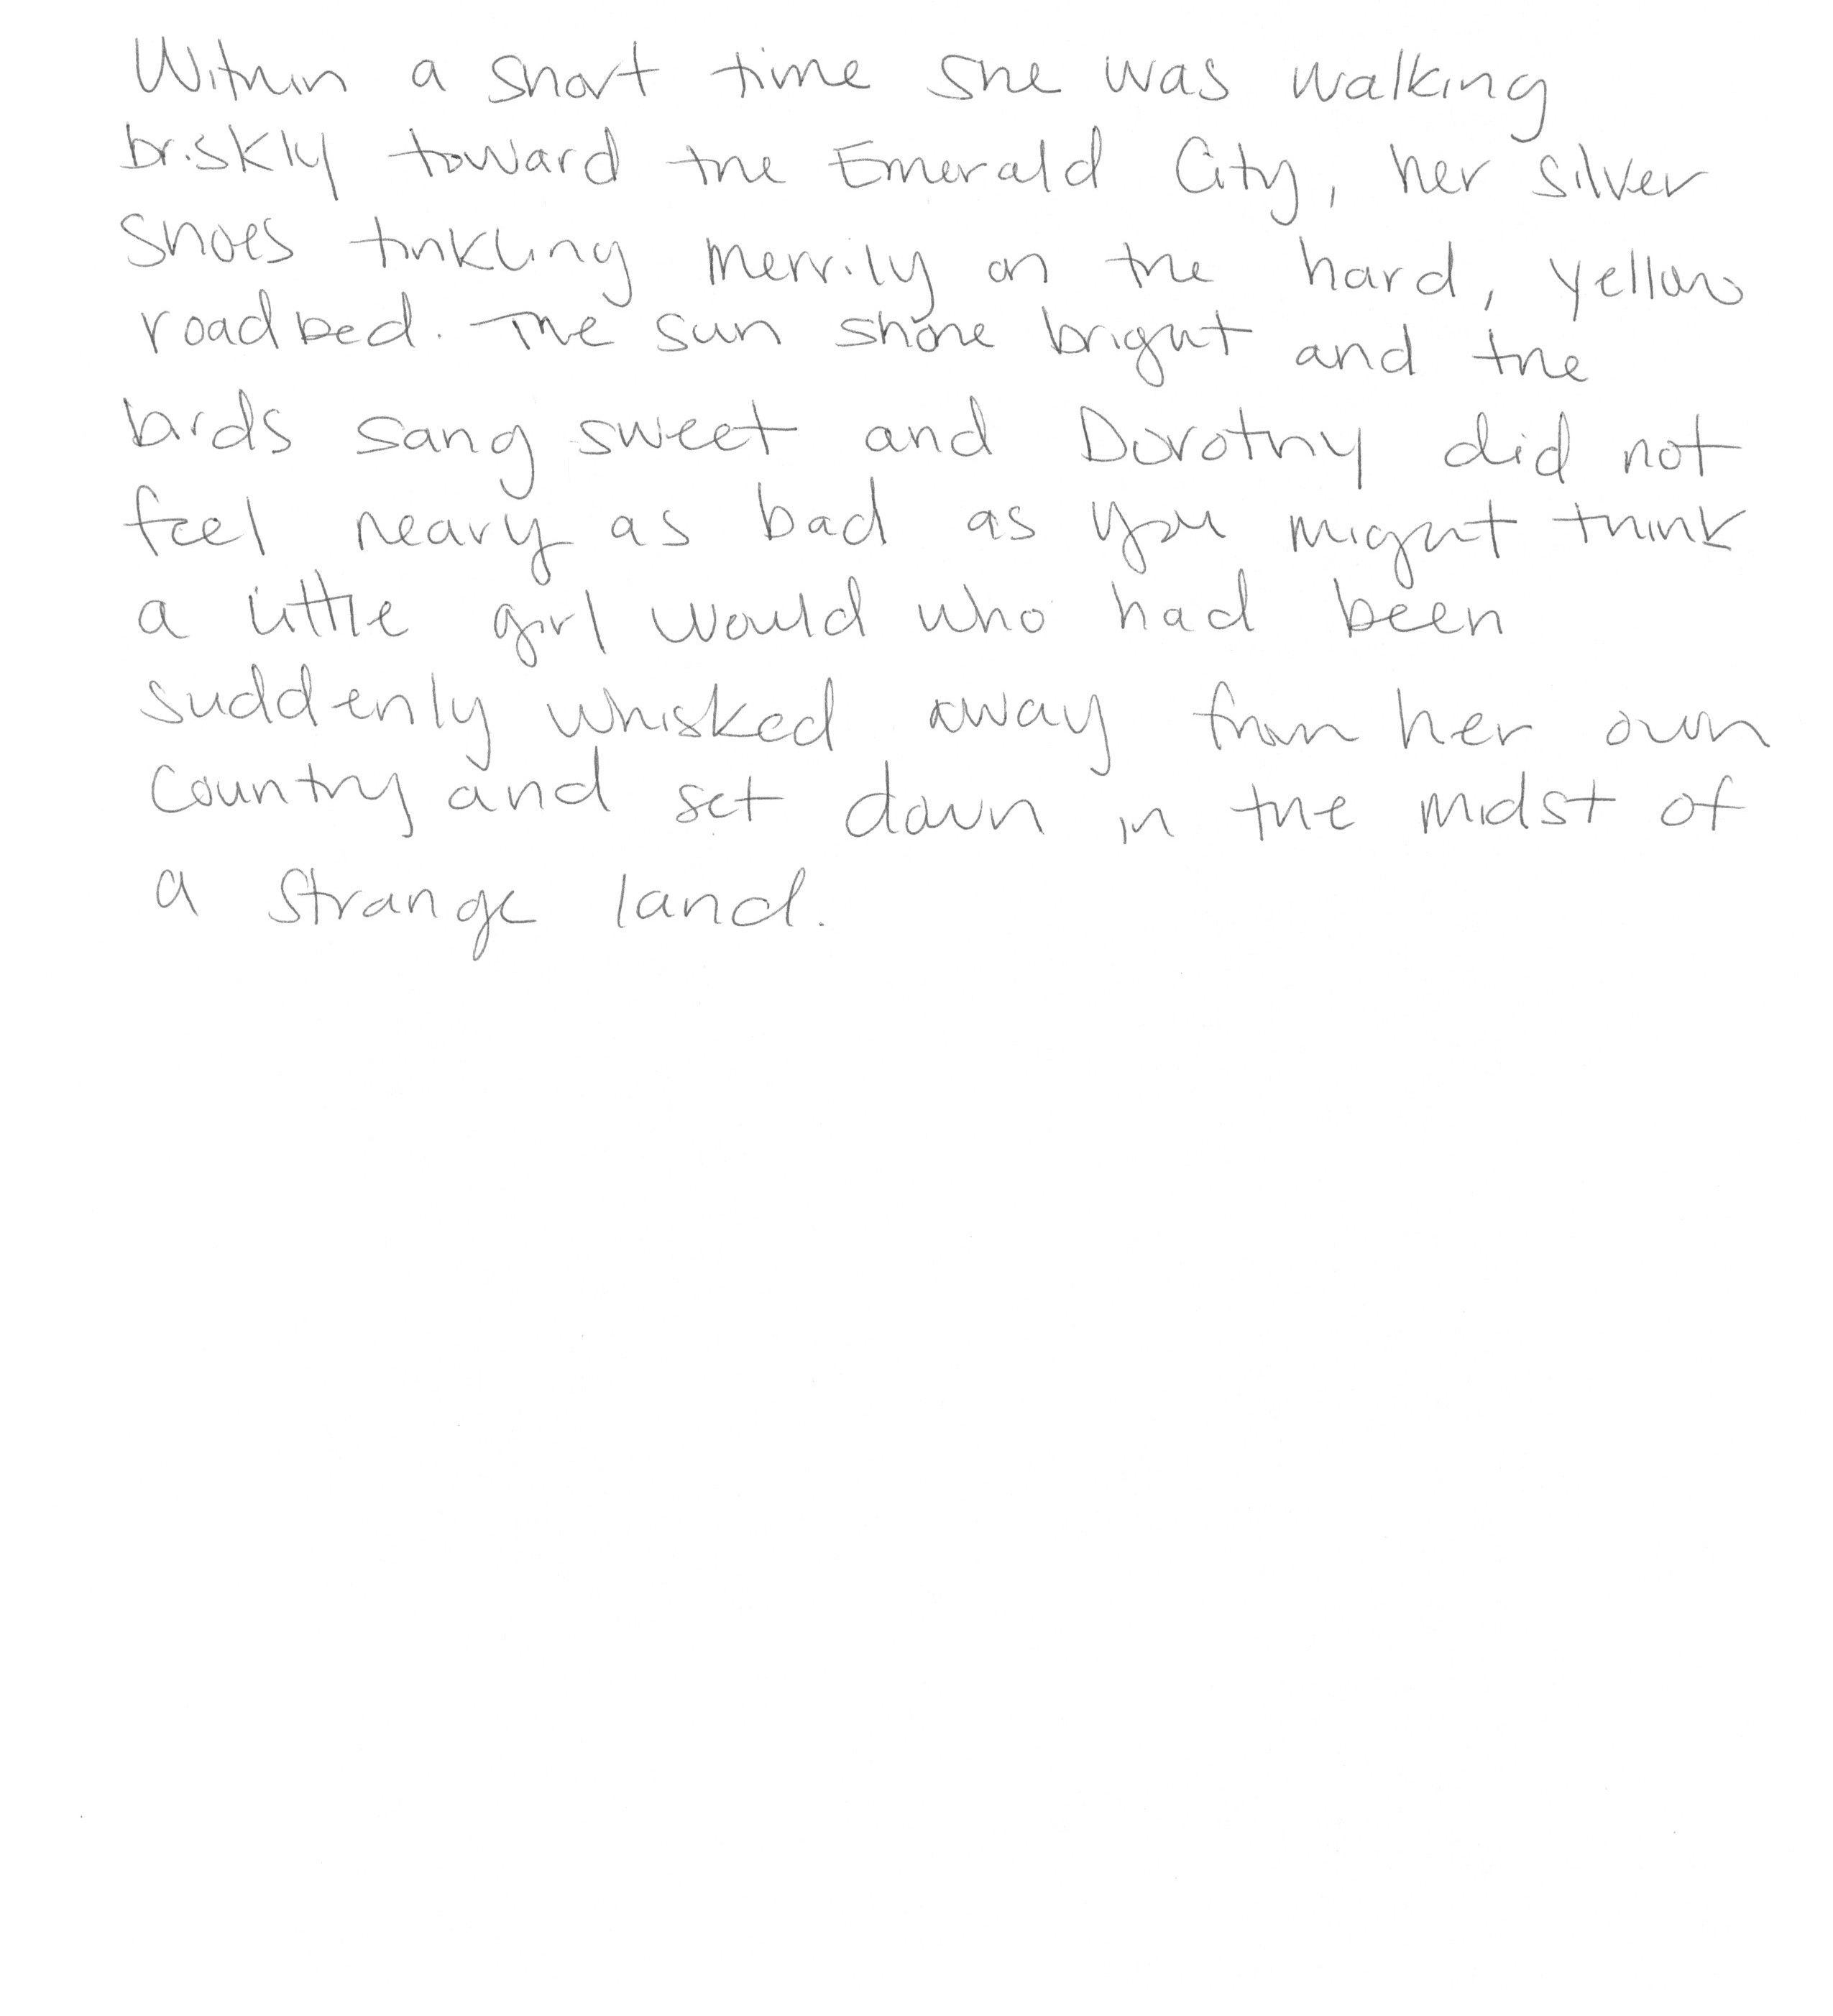 Within a short time she was walking
briskly toward the Emerald City, her silver
shoes tinkling merrily on the hard, yellow
roadbed. The sun shone bright and the
birds sang sweet and Dorothy did not
feel neary as bad as you might think
a little girl would who had been
suddenly whisked away from her own
country and set down in the midst of
a strange land.